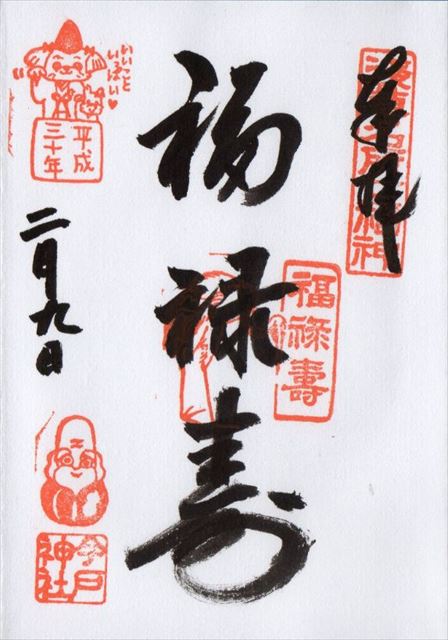 奉拝
浅草名所七福神
福禄寿
福禄壽
いいこと
いっぱい♥
平成
三十年
二月九日
今戸
神社